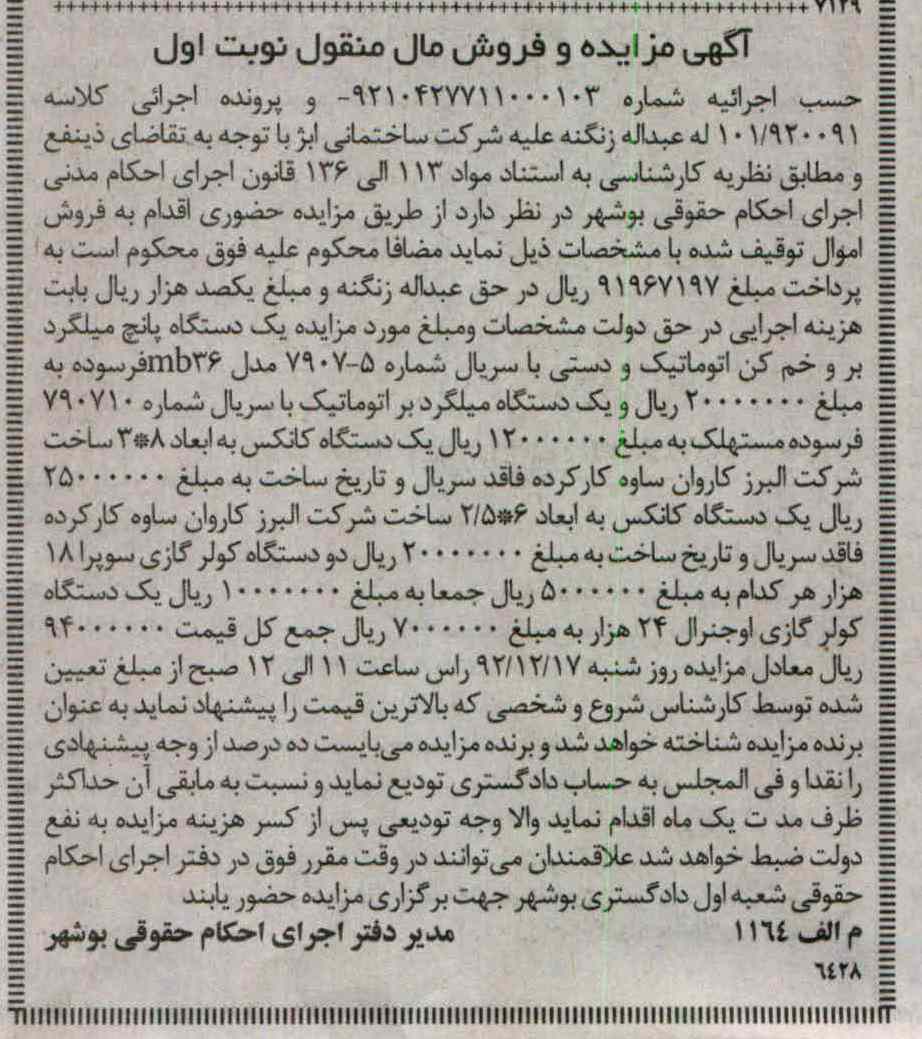 ۷۱۲۹
آگهی مزایده و فروش مال منقول نوبت اول
حسب اجرائیه شماره ۹۲۱۰۴۲۷۷۱۱۰۰۰۱۰۳- و پرونده اجرائی کلاسه
۱۰۱/۹۲۰۰۹۱ له عبداله زنگنه علیه شرکت ساختمانی ابژ با توجه به تقاضای ذینفع
و مطابق نظریه کارشناسی به استناد مواد ۱۱۳ الی ۱۳۶ قانون اجرای احکام مدنی
اجرای احکام حقوقی بوشهر در نظر دارد از طریق مزایده حضوری اقدام به فروش
اموال توقیف شده با مشخصات ذیل نماید مضافا محکوم علیه فوق محکوم است به
پرداخت مبلغ ۹۱۹۶۷۱۹۷ ریال در حق عبداله زنگنه و مبلغ یکصد هزار ریال بابت
هزینه اجرایی در حق دولت مشخصات ومبلغ مورد مزایده یک دستگاه پانچ میلگرد
بر و خم کن اتوماتیک و دستی با سریال شماره ۵-۷۹۰۷ مدل mb۳۶فرسوده به
مبلغ ۲۰۰۰۰۰۰۰ ریال و یک دستگاه میلگرد بر اتوماتیک با سریال شماره ۷۹۰۷۱۰
فرسوده مستهلک به مبلغ ۱۲۰۰۰۰۰۰ ریال یک دستگاه کانکس به ابعاد ۸*۳ ساخت
شرکت البرز کاروان ساوه کارکرده فاقد سریال و تاریخ ساخت به مبلغ ۲۵۰۰۰۰۰۰
ریال یک دستگاه کانکس به ابعاد ۶*۲/۵ ساخت شرکت البرز کاروان ساوه کارکرده
فاقد سریال و تاریخ ساخت به مبلغ ۲۰۰۰۰۰۰۰ ریال دو دستگاه کولر گازی سوپرا ۱۸
هزار هر کدام به مبلغ ۵۰۰۰۰۰۰ ریال جمعا به مبلغ ۱۰۰۰۰۰۰۰ ریال یک دستگاه
کولر گازی اوجنرال ۲۴ هزار به مبلغ ۷۰۰۰۰۰۰ ریال جمع کل قیمت ۹۴۰۰۰۰۰۰
ریال معادل مزایده روز شنبه ۹۲/۱۲/۱۷ راس ساعت ۱۱ الی ۱۲ صبح از مبلغ تعیین
شده توسط کارشناس شروع و شخصی که بالاترین قیمت را پیشنهاد نماید به عنوان
برنده مزایده شناخته خواهد شد و برنده مزایده می‌بایست ده درصد از وجه پیشنهادی
را نقدا و فی المجلس به حساب دادگستری تودیع نماید و نسبت به مابقی آن حداکثر
ظرف مد ت یک ماه اقدام نماید والا وجه تودیعی پس از کسر هزینه مزایده به نفع
دولت ضبط خواهد شد علاقمندان می‌توانند در وقت مقرر فوق در دفتر اجرای احکام
حقوقی شعبه اول دادگستری بوشهر جهت برگزاری مزایده حضور یابند
م الف ۱۱۶۴ مدیر دفتر اجرای احکام حقوقی بوشهر
۶۴۲۸